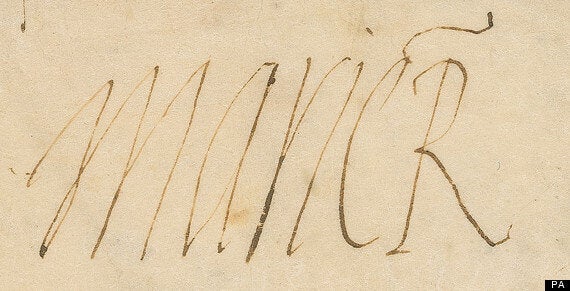 Marie R
PA